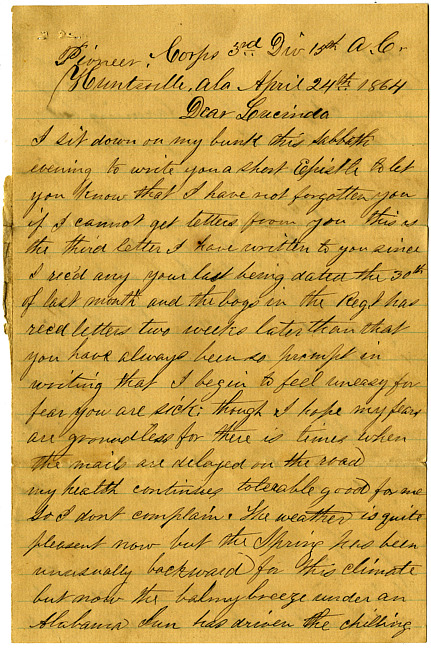 Pioneer Corps 3rd Div 15th A.C.
Huntsville, Ala April 24th 1864
Dear Lucinda
I sit down on my bunk this sabbath
evening to write you a short Epistle to let
you know that I have not forgotten you
if I cannot get letters from you this is
the third letter I have written to you since
I rec'd any your last being dated the 30th
of last month and the boys in the Regt has
recd letters two weeks later than that
you have always been so prompt in
writing that I begin to feel uneasy for
fear you are sick; though I hope my fears
are groundless for there is times when
the mails are delayed on the road
my health continues toleable good for me
so I dont complain. The weather is quite
pleasent now but the Spring has been
unusually backward for this climate
but now the balmy breeze under an
Alabama Sun has driven the chilling